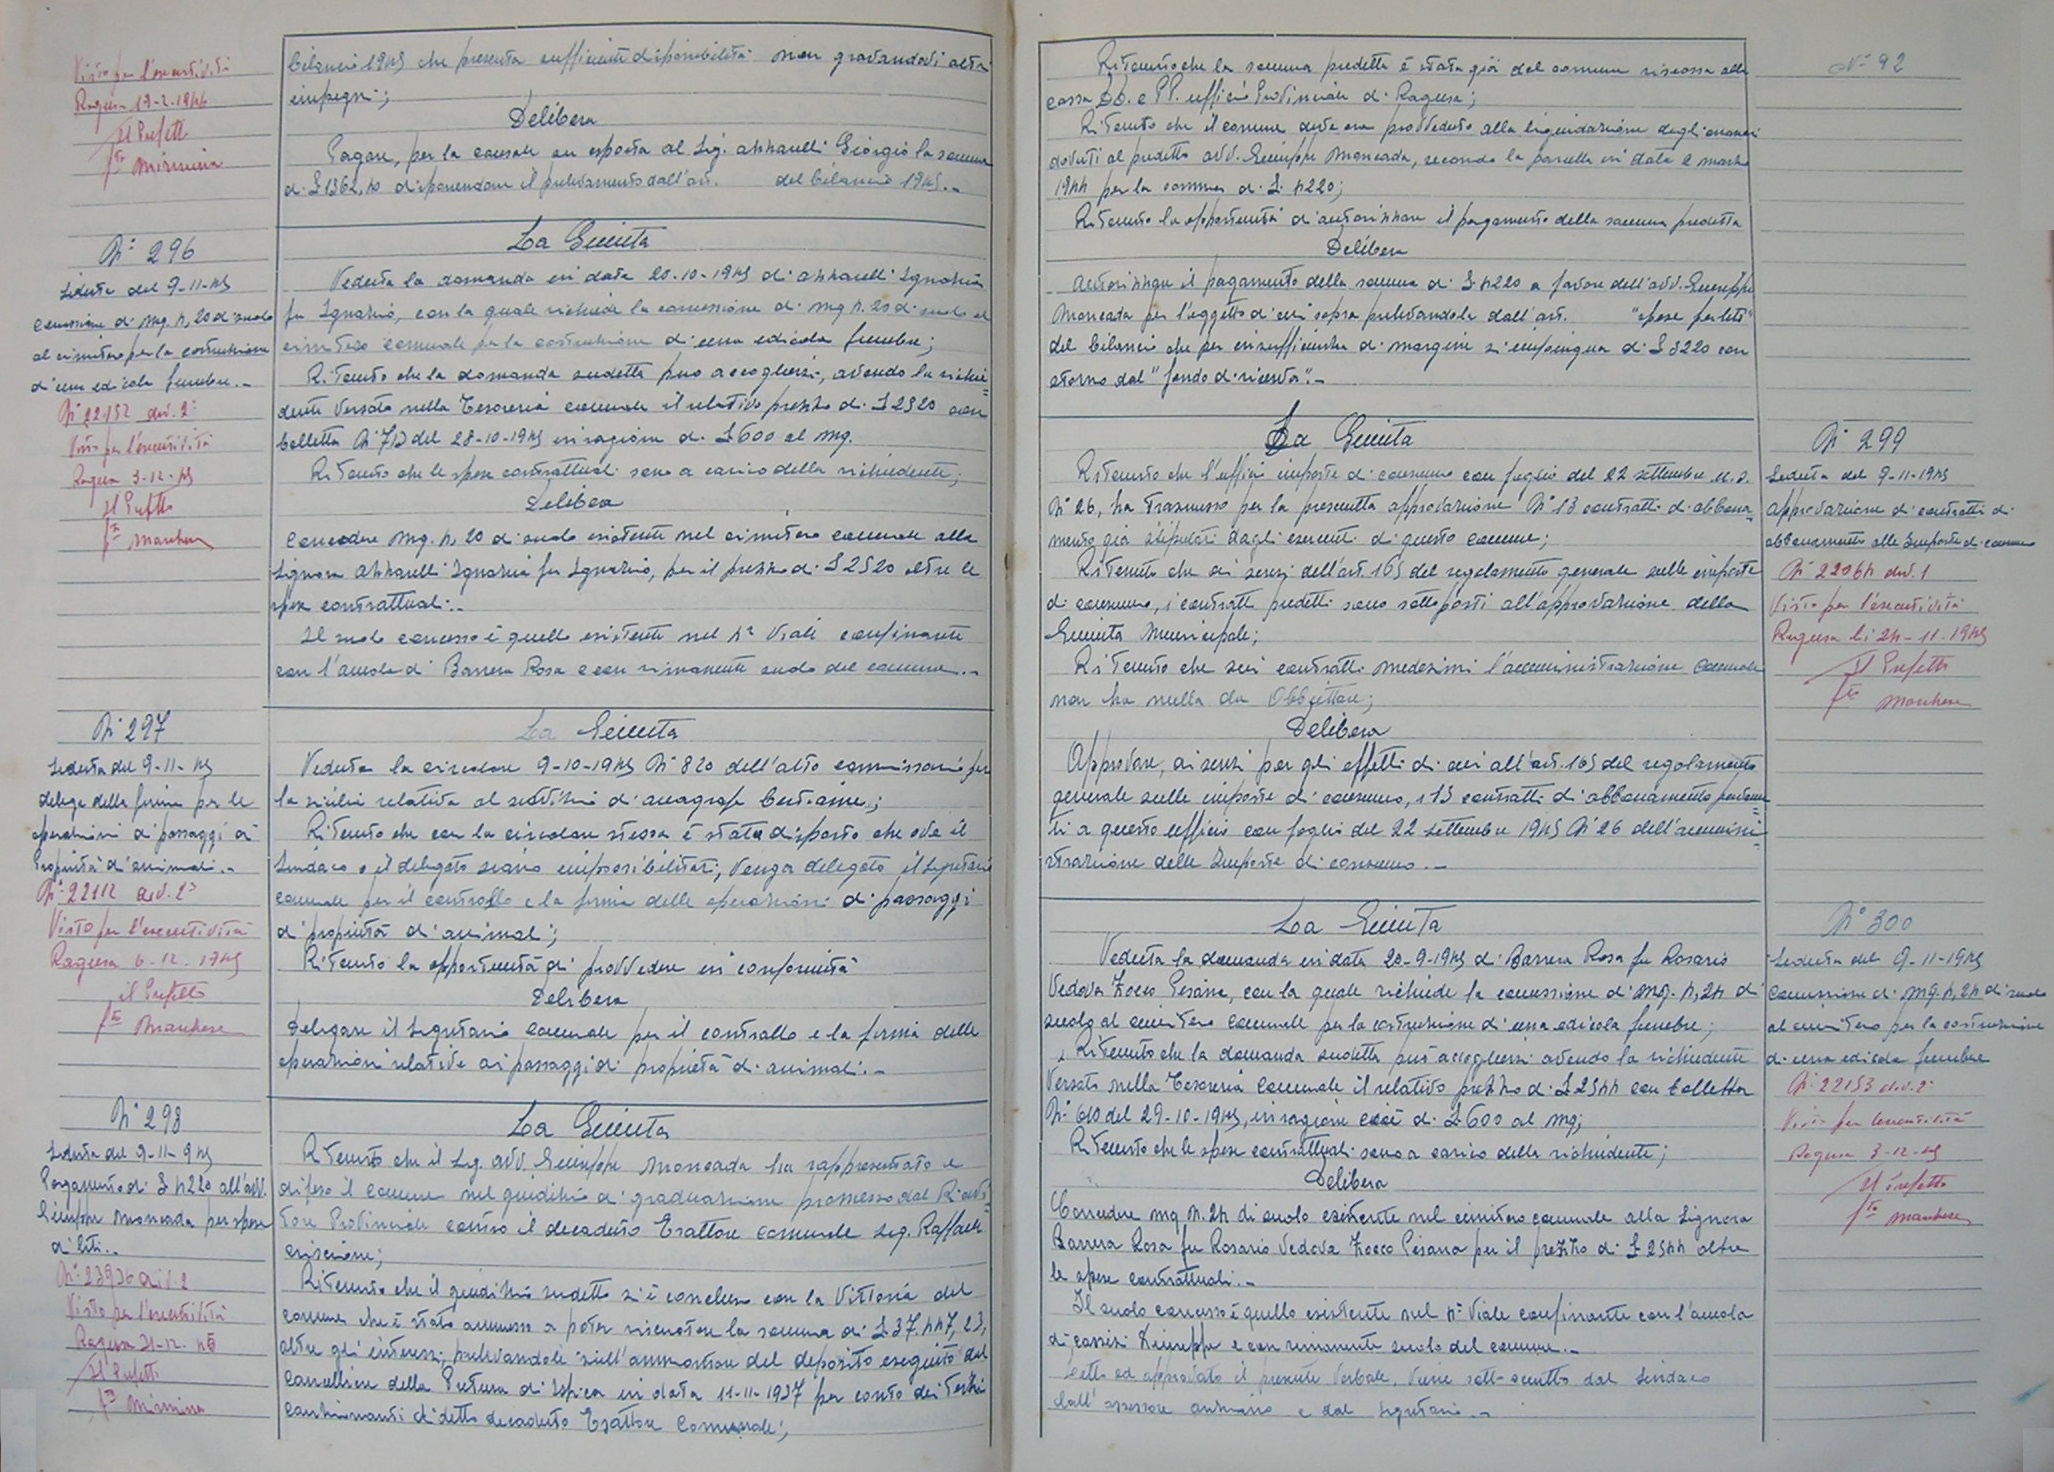 Visto per l'esecutività
Ragusa 19-2-1946
Il Prefetto
fto Mirmina
bilancio 1945 che presenta sufficiente disponibilità non gravandovi altri
impegni;
Delibera
Pagare, per la causale su esposta al Sig. Azzarelli Giorgio la somma
di £ 1362,40 disponendone il prelevamento dall'art. del bilancio 1945.-
N° 296
Seduta del 9-11-45
Concessione di mq. 4,20 di suolo
al cimitero per la costruzione
d'una edicola funebre.-
N° 22152 div. 2ª
Visto per l'esecutività
Ragusa 3-12-45
Il Prefetto
fto Marchese
La Giunta
Veduta la domanda in data 20-10-1945 di Azzarelli Ignazia
fu Ignazio, con la quale richiede la concessione di mq 4.20 di suolo al
cimitero comunale per la costruzione d'una edicola funebre;
Ritenuto che la domanda sudetta può accogliersi, avendo la richie=
dente versato nella Tesoreria comunale il relativo prezzo di £ 2520 con
bolletta N° 713 del 28-10-1945 in ragione di £ 600 al mq.
Ritenuto che le spese contrattuali sono a carico della richiedente;
Delibera
Concedere mq. 4,20 di suolo esistente nel cimitero comunale alla
Signora Azzarelli Ignazia fu Ignazio, per il prezzo di £ 2520 oltre le
spese contrattuali.-
Il suolo concesso è quello esistente nel 4° Viale confinante
con l'auola di Barrera Rosa e con rimanente suolo del comune.-
N° 297
Seduta del 9-11-45
delega della firma per le
operazioni di passaggi di
Proprietà d'animali.-
N° 22112 div. 2ª
Visto per l'esecutività
Ragusa 6-12-1945
il Prefetto
fto Marchese
La Giunta
Veduta la circolare 9-10-1945 N° 820 dell'alto commissario per
la Sicilia relativa al servizio d'anagrafe bestiame;
Ritenuto che con la circolare stessa è stato disposto che ove il
Sindaco o il delegato siano impossibilitati, venga delegato il Segretario
comunale per il controllo e la firma delle operazioni di passaggi
di proprietà di animali;
Ritenuto la opportunità di provvedere in conformità
Delibera
Delegare il Segretario comunale per il controllo e la firma delle
operazioni relative ai passaggi di proprietà di animali.-
N° 298
Seduta del 9-11-945
Pagamento di £ 4220 all'avv.
Giuseppe Moncada per spese
di liti.-
N° 23936 div. 2
Visto per l'esecutività
Ragusa 21-12-45
Il Prefetto
fto Mirmina
La Giunta
Ritenuto che il Sig. avv. Giuseppe Moncada ha rappresentato e
difeso il Comune nel giudizio di graduazione promosso dal Ricevi=
tore Provinciale contro il decaduto Esattore comunale Sig. Raffaele
Criscione;
Ritenuto che il giudizio sudetto si è concluso con la vittoria del
comune che è stato ammesso a poter riscuotere la somma di £ 37.447,23,
oltre gli interessi, prelevandole sull'ammontare del deposito eseguito dal
Cancelliere della Pretura di Ispica in data 11-11-1937 per conto dei terzi
cauzionanti di detto decaduto Esattore Comunale;
N° 92
Ritenuto che la somma predetta è stata già dal comune riscossa alla
cassa DD. e PP. ufficio Provinciale di Ragusa;
Ritenuto che il comune deve ora provvedere alla liquidazione degli onorari
dovuti al predetto avv. Giuseppe Moncada, secondo la parcella in data 2 marzo
1944 per la somma di £. 4220;
Ritenuto la opportunità d'autorizzare il pagamento della somma predetta
Delibera
Autorizzare il pagamento della somma di £ 4220 a favore dell'avv. Giuseppe
Moncada per l'oggetto di cui sopra prelevandola dall'art. "Spese per liti"
del bilancio che per insufficienza di margine si impingua di £ 3220 con
storno dal "fondo di riserva".-
La Giunta
Ritenuto che l'ufficio imposte di consumo con foglio del 22 settembre u.s.
N° 26, ha trasmesso per la prescritta approvazione N° 13 contratti di abbona=
mento già stipulati dagli esercenti di questo comune;
Ritenuto che ai sensi dell'art. 165 del regolamento generale sulle imposte
di consumo, i contratti predetti sono sottoposti all'approvazione della
Giunta Municipale;
Ritenuto che sui contratti medesimi l'amministrazione Comunale
non ha nulla da obbiettare;
Delibera
Approvare, ai sensi per gli effetti di cui all'art. 165 del regolamento
generale sulle imposte di consumo, i 13 contratti di abbonamento pervenu=
ti a questo ufficio con foglio del 22 settembre 1945 N° 26 dell'ammini=
strazione delle Imposte di consumo.-
N° 299
Seduta del 9-11-1945
Approvazione di contratti di
abbonamento alle Imposte di consumo
N° 22064 div. 1
Visto per l'esecutività
Ragusa li 24-11-1945
Il Prefetto
fto Marchese
La Giunta
Veduta la domanda in data 20-9-1945 di Barrera Rosa fu Rosario
Vedova Zocco Pisana, con la quale richiede la concessione di mq. 4,24 di
suolo al cimitero comunale per la costruzione di una edicola funebre;
Ritenuto che la domanda sudetta può accogliersi avendo la richiedente
versato nella Tesoreria Comunale il relativo prezzo di £ 2544 con bolletta
N° 610 del 29-10-1945, in ragione cioè di £ 600 al mq;
Ritenuto che le spese contrattuali sono a carico della richiedente;
Delibera
Concedere mq 4.24 di suolo esistente nel cimitero comunale alla Signora
Barrera Rosa fu Rosario Vedova Zocco Pisana per il prezzo di £ 2544 oltre
le spese contrattuali.-
Il suolo concesso è quello esistente nel 4° Viale confinante con l'auola
di Giuseppe e con rimanente suolo del comune.-
Letto ed approvato il presente verbale, viene sottoscritto dal Sindaco
dall'assessore anziano e dal Segretario.-
N° 300
Seduta del 9-11-1945
Concessione di mq. 4,24 di suolo
al cimitero per la costruzione
di una edicola funebre
N° 22153 div. 2ª
Visto per l'esecutività
Ragusa 3-12-45
Il Prefetto
fto Marchese